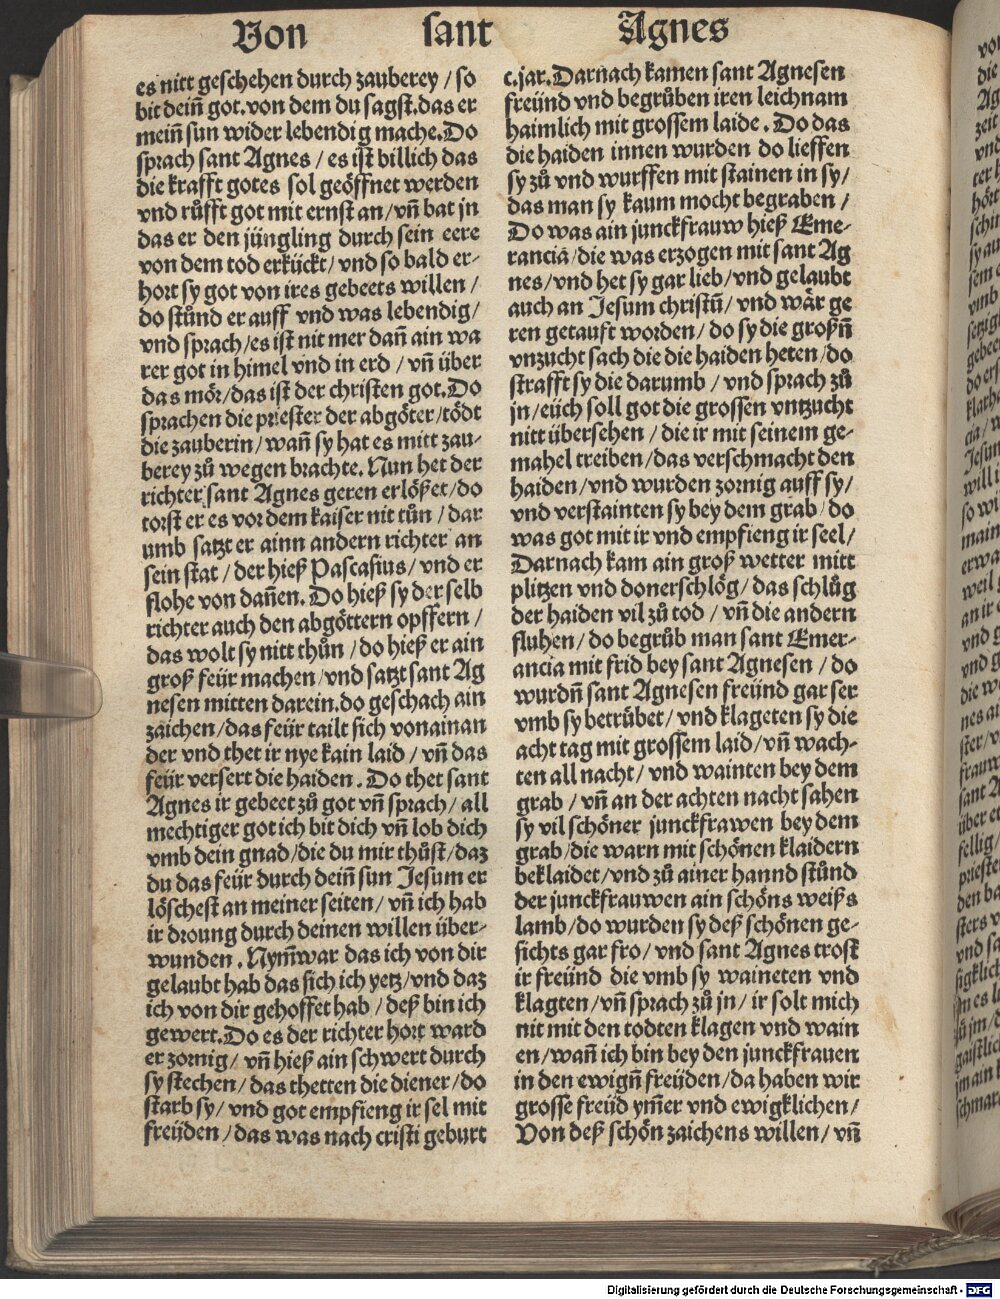 Von sant Agnes
es nitt geschehen durch zauberey / so
bit deiñ got. von dem du sagst. das er
meiñ sun wider lebendig mache. Do
sprach sant Agnes / es ist billich das
die krafft gotes sol geöffnet werden
vnd růfft got mit ernst an / vñ bat jn
das er den jüngling durch sein eere
von dem tod erkückt / vnd so bald er⸗
hort sy got von ires gebeets willen /
do stůnd er auff vnd was lebendig /
vnd sprach / es ist nit mer dañ ain wa
rer got in himel vnd in erd / vñ über
das mör / das ist der christen got. Do
sprachen die priester der abgöter / tödt
die zauberin / wañ sy hat es mitt zau⸗
berey zů wegen brachte. Nun het der
richter sant Agnes geren erlößet / do
torst er es vor dem kaiser nit tůn / dar
umb satzt er ainn andern richter an
sein stat / der hieß Pascasius / vnd er
flohe von dañen. Do hieß sy der selb
richter auch den abgöttern opffern /
das wolt sy nitt thůn / do hieß er ain
groß feür machen / vnd satzt sant Ag
nesen mitten darein. do geschach ain
zaichen / das feür tailt sich vonainan
der vnd thet ir nye kain laid / vñ das
feür versert die haiden. Do thet sant
Agnes ir gebeet zů got vñ sprach / all
mechtiger got ich bit dich vñ lob dich
vmb dein gnad / die du mir thůst / daz
du das feür durch deiñ sun Jesum er
löschest an meiner seiten / vñ ich hab
ir droung durch deinen willen über⸗
wunden. Nym̃war das ich von dir
gelaubt hab das sich ich yetz / vnd daz
ich von dir gehoffet hab / deß bin ich
gewert. Do es der richter hort ward
er zornig / vñ hieß ain schwert durch
sy stechen / das thetten die diener / do
starb sy / vnd got empfieng ir sel mit
freüden / das was nach cristi geburt
c. jar. Darnach kamen sant Agnesen
freünd vnd begrůben iren leichnam
haimlich mit grossem laide. Do das
die haiden innen wurden do lieffen
sy zů vnd wurffen mit stainen in sy /
das man sy kaum mocht begraben /
Do was ain junckfrauw hieß Eme⸗
ranciã / die was erzogen mit sant Ag
nes / vnd het sy gar lieb / vnd gelaubt
auch an Jesum christũ / vnd wär ge
ren getauft worden / do sy die großñ
vnzucht sach die die haiden heten / do
strafft sy die darumb / vnd sprach zů
jn / eüch soll got die grossen vntzucht
nitt übersehen / die ir mit seinem ge⸗
mahel treiben / das verschmacht den
haiden / vnd wurden zornig auff sy /
vnd verstainten sy bey dem grab / do
was got mit ir vnd empfieng ir seel /
Darnach kam ain groß wetter mitt
plitzen vnd donerschlög / das schlůg
der haiden vil zů tod / vñ die andern
fluhen / do begrůb man sant Emer⸗
ancia mit frid bey sant Agnesen / do
wurdñ sant Agnesen freünd gar ser
vmb sy betrübet / vnd klageten sy die
acht tag mit grossem laid / vñ wach⸗
ten all nacht / vnd wainten bey dem
grab / vñ an der achten nacht sahen
sy vil schöner junckfrawen bey dem
grab / die warn mit schönen klaidern
beklaidet / vnd zů ainer hannd stůnd
der junckfrauwen ain schöns weißs
lamb / do wurden sy deß schönen ge⸗
sichts gar fro / vnd sant Agnes trost
ir freünd die vmb sy waineten vnd
klagten / vñ sprach zů jn / ir solt mich
nit mit den todten klagen vnd wain
en / wañ ich bin bey den junckfrauen
in den ewigñ freüden / da haben wir
grosse freüd ym̃er vnd ewigklichen /
Von deß schön zaichens willen / vñ
Digitalisierung gefördert durch die Deutsche Forschungsgemeinschaft - DFG